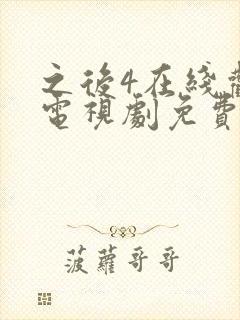 之後4在綫觀
電視劇免費
菠蘿哥哥